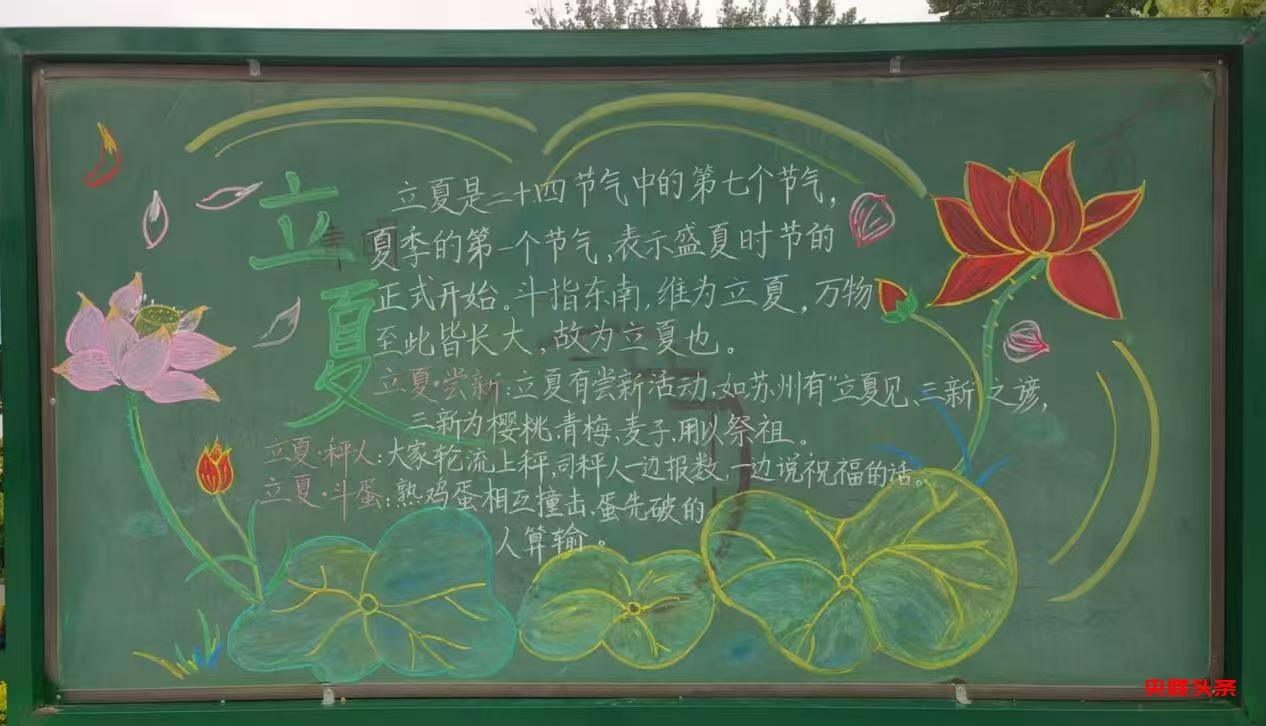 立夏
立夏是二十四节气中的第七个节气,
夏季的第一个节气,表示盛夏时节的
正式开始。斗指东南,维为立夏,万物
至此皆长大,故为立夏也。
立夏·尝新:立夏有尝新活动,如苏州有"立夏见三新"之谚,
三新为樱桃、青梅、麦子,用以祭祖。
立夏·秤人:大家轮流上秤,司秤人一边报数,一边说祝福的话。
立夏·斗蛋:熟鸡蛋相互撞击,蛋先破的
人算输。
央媒头条